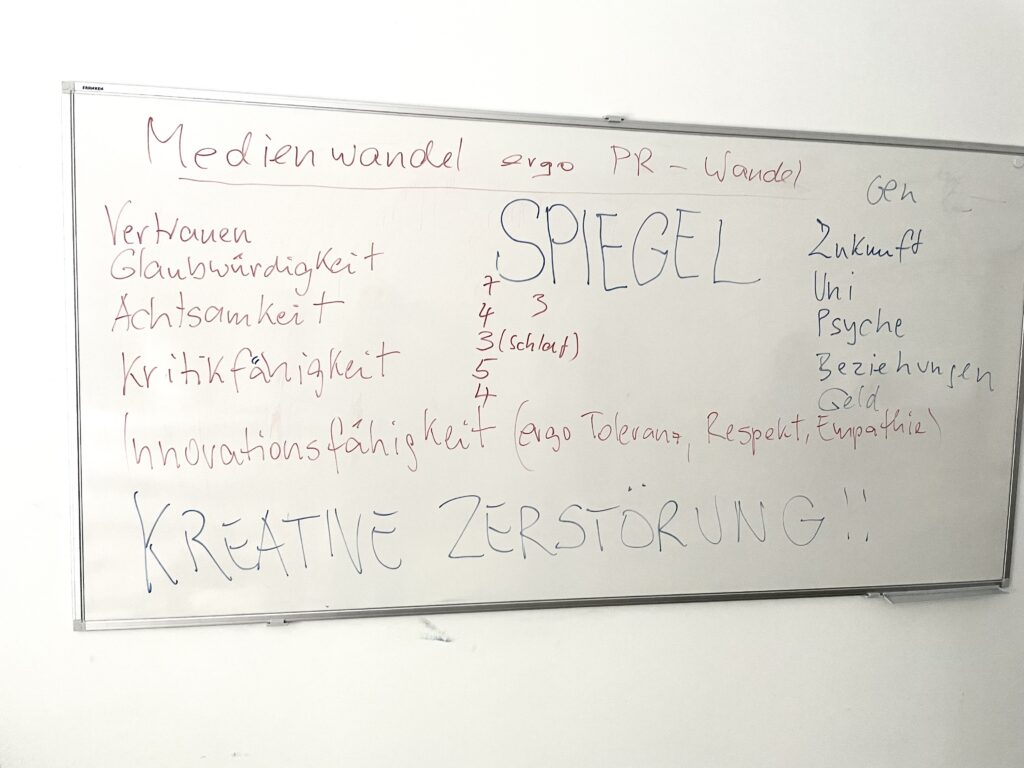 FRANKEN
Medienwandel ergo PR - Wandel
Gen
Vertrauen
Glaubwürdigkeit
Achtsamkeit
Kritikfähigkeit
Innovationsfähigkeit (ergo Toleranz, Respekt, Empathie)
SPIEGEL
7
4 3
3 (Schlaf)
5
4
Zukunft
Uni
Psyche
Beziehungen
Geld
KREATIVE ZERSTÖRUNG!!